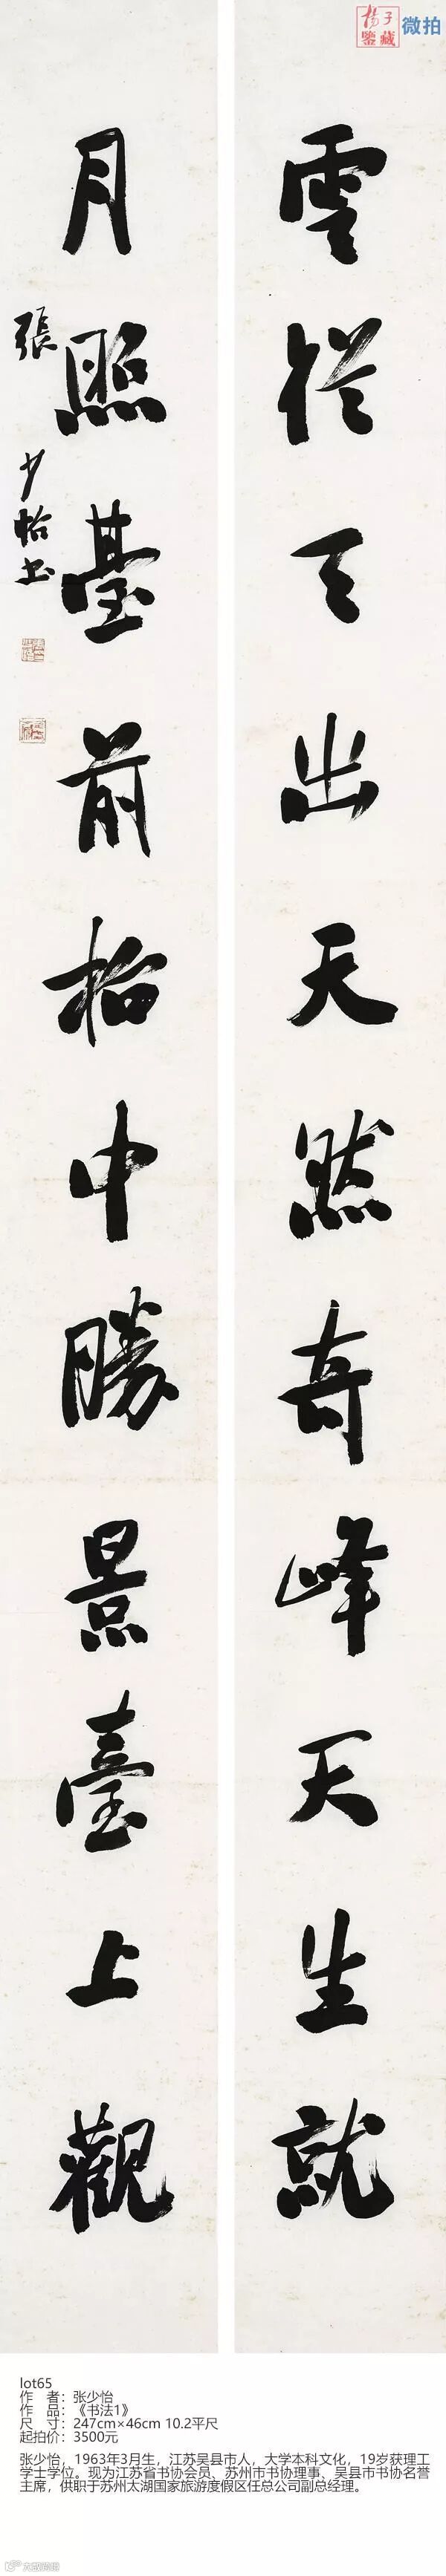 杨子
鉴藏
微拍
雲從天出天然奇峰天生就
月照臺前枱中勝景臺上觀
張少怡书
lot65
作 者：张少怡
作 品：《书法1》
尺 寸：247cm×46cm 10.2平尺
起拍价：3500元
张少怡，1963年3月生，江苏吴县市人，大学本科文化，19岁获理工
学士学位。现为江苏省书协会员、苏州市书协理事、吴县市书协名誉
主席，供职于苏州太湖国家旅游度假区任总公司副总经理。